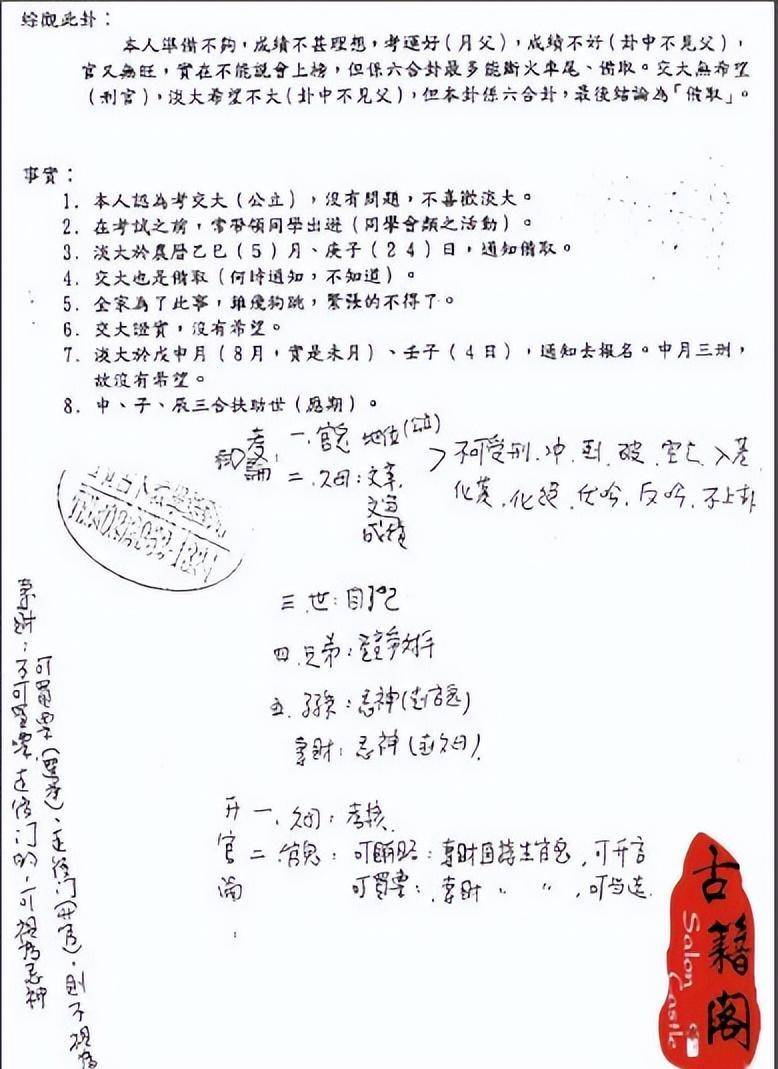 綜觀此卦：
本人準備不夠，成績不甚理想，考運好（月父），成績不好（卦中不見父），
官又無旺，實在不能說會上榜，但係六合卦最多能斷火車尾、備取。交大無希望
（刑官），淡大希望不大（卦中不見父），但本卦係六合卦，最後結論為「備取」。
事實：
1. 本人認為考交大（公立），沒有問題，不喜歡淡大。
2. 在考試之前，常帶領同學出遊（同學會類之活動）。
3. 淡大於農曆乙巳（5）月、庚子（24）日，通知備取。
4. 交大也是備取（何時通知，不知道）。
5. 全家為了此事，雞飛狗跳，緊張的不得了。
6. 交大證實，沒有希望。
7. 淡大於戊申月（8月，實是未月）、壬子（4日），通知去報名。申月三刑，
故沒有希望。
8. 申、子、辰三合扶助世（應期）。
考試論：
一、官鬼：地位（公立）
二、父母：文章
文書
成績
>不可受刑、冲、剋、破、空亡、入墓
化墓、化絕、伏吟、反吟、不上卦
三、世：自己
四、兄弟：競爭對手
五、子孫：忌神（剋官鬼）
妻財：忌神（剋父母）
升官論：
一、父母：考核
二、官鬼：可賄賂：妻財自持生官鬼，可升官
可買票：妻財 〃 〃，可当选
妻財：不可買票走後门的，可視為忌神
可買票（選举）、走後门（升官），則不視為
古籍阁
Salon